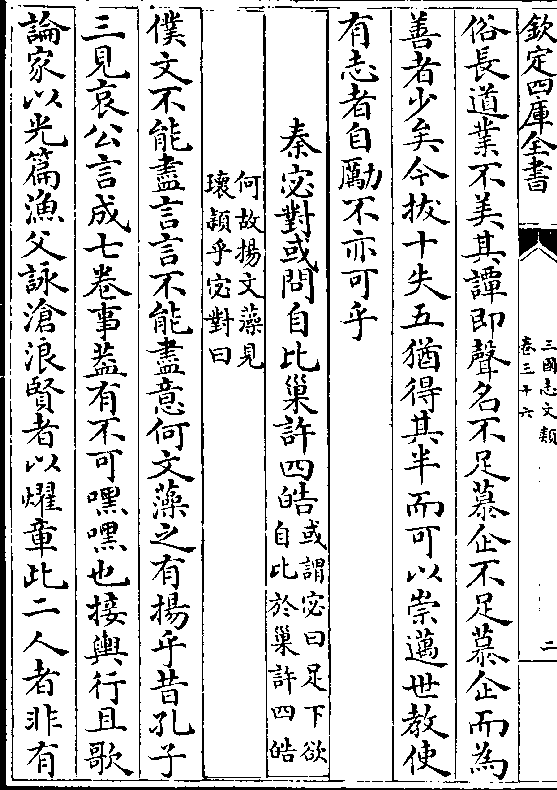 欽定四庫全書
三國志文類
卷三十六
二
俗長道業不美其譚即聲名不足慕企不足慕企而為
善者少矣今拔十失五猶得其半而可以崇邁世教使
有志者自勵不亦可乎
秦宓對或問自比巢許四皓
或謂宓曰足下欲
自比於巢許四皓
何故揚文藻見
瓌頴乎宓對曰
僕文不能盡言言不能盡意何文藻之有揚乎昔孔子
三見哀公言成七卷事葢有不可嘿嘿也接輿行且歌
論家以光篇漁父詠滄浪賢者以燿章此二人者非有